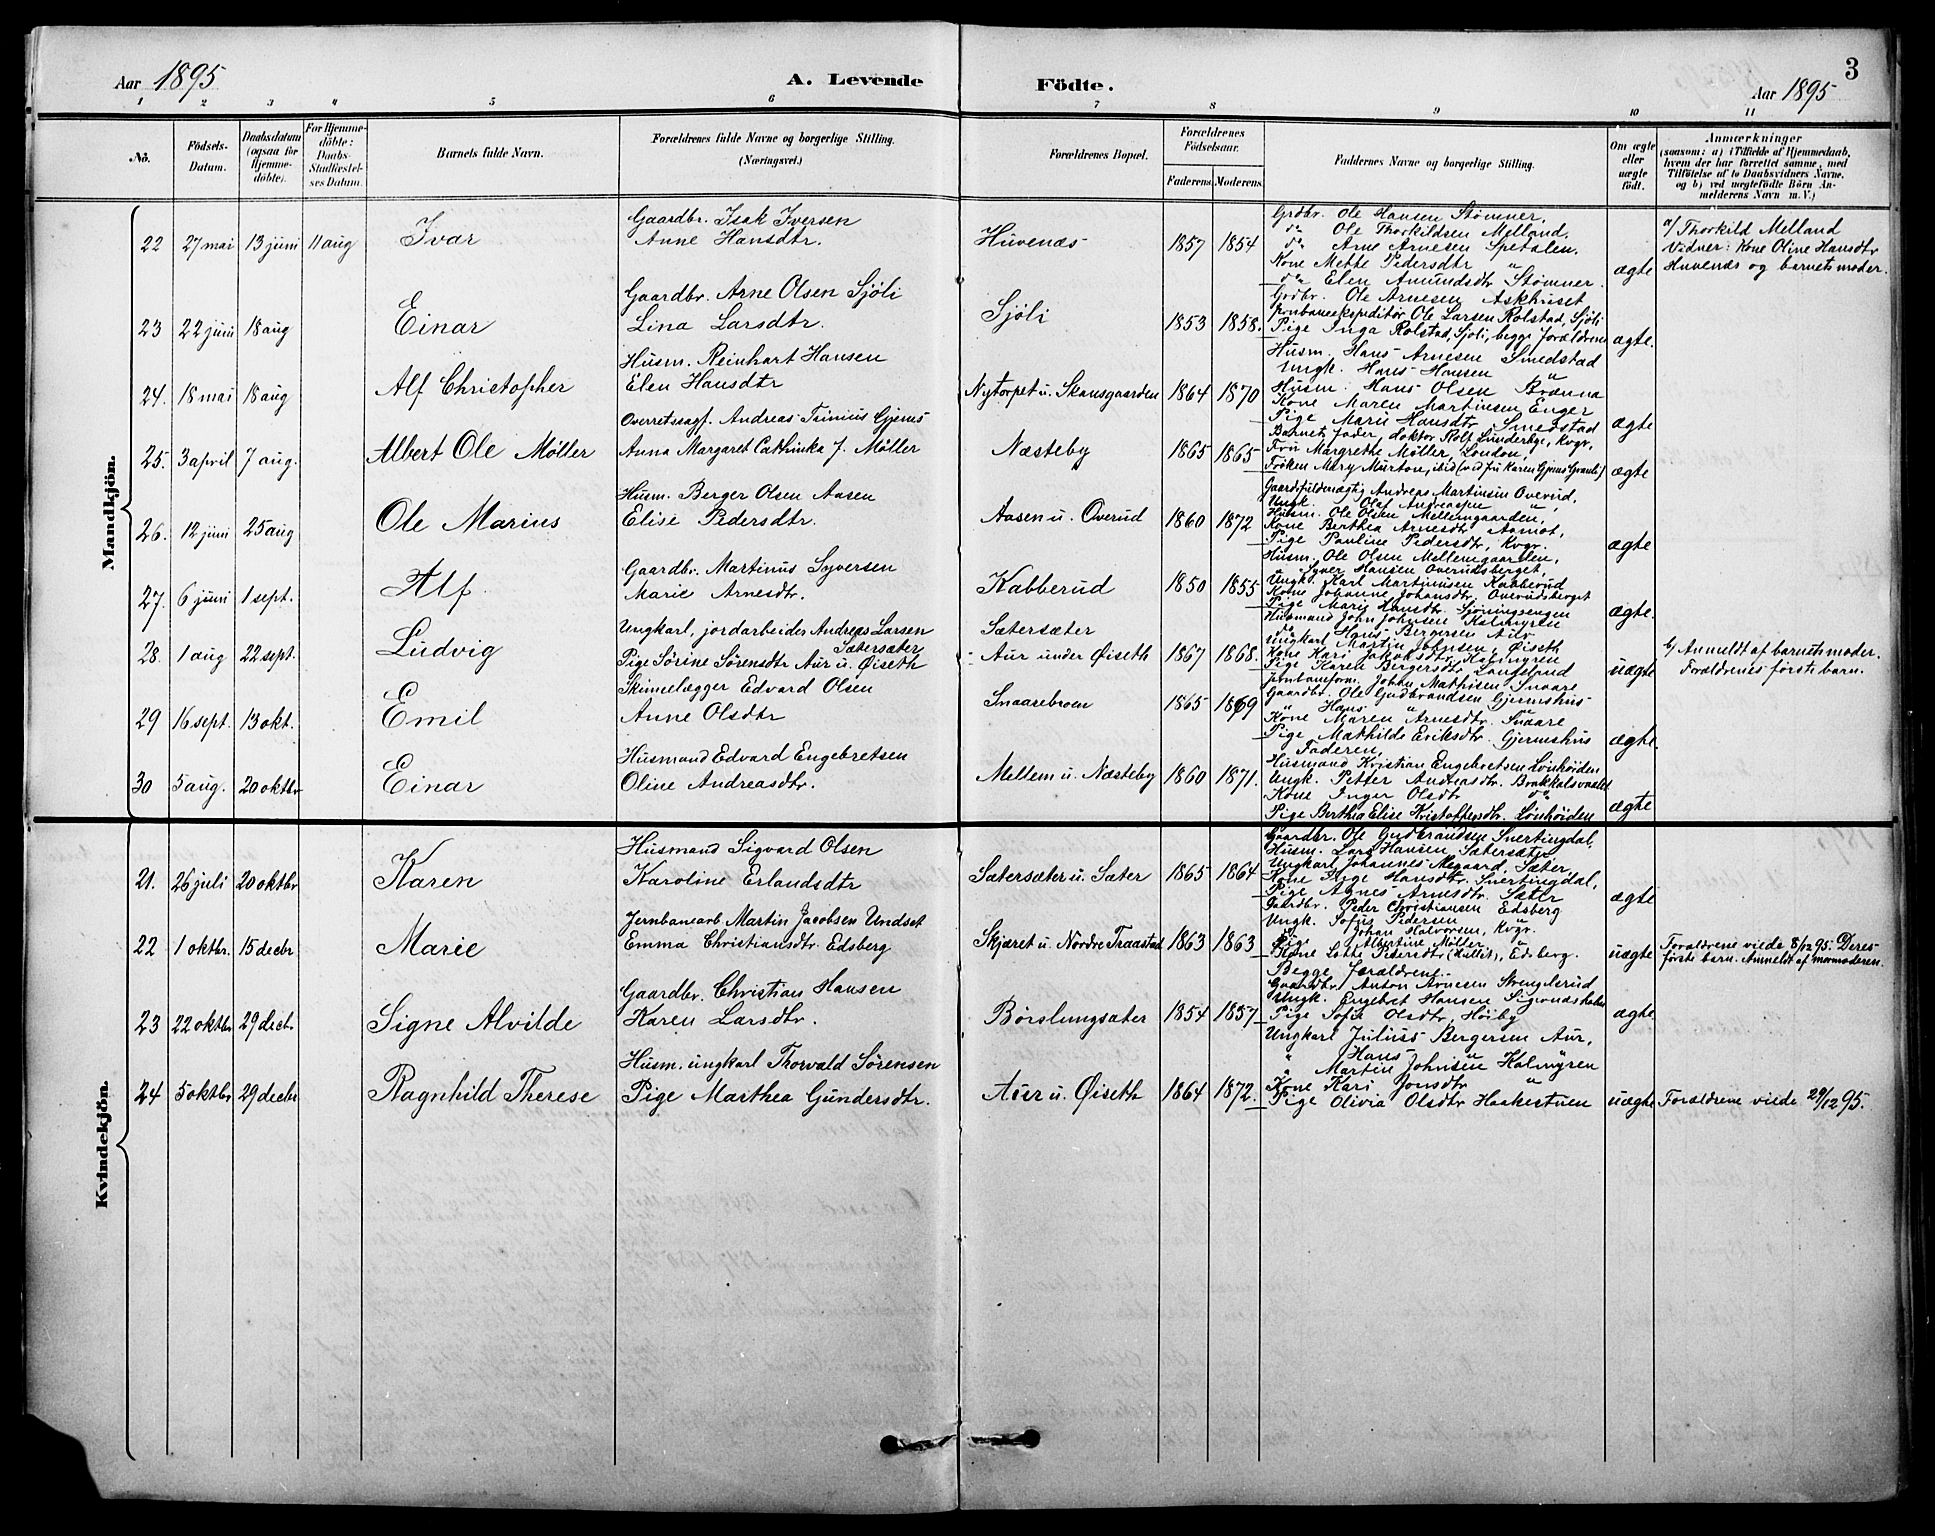 Aar 1895
A. Levende Födte.
3
Aar 1895
1 2 3 4 5 6 7 8 9 10 11
No.
Födsels-Datum.
Daabsdatum (ogsaa for Hjemme-döbte).
For Hjemme-döbte: Daabs-Stadfæstel-ses Datum.
Barnets fulde Navn.
Forældrenes fulde Navne og borgerlige Stilling. (Næringsvei.)
Forældrenes Bopæl.
Forældrenes Födselsaar.
Faderens Moderens
Faddernes Navne og borgerlige Stilling.
Om ægte eller uægte födt.
Anmærkninger (saasom: a) i Tilfælde af Hjemmedaab, hvem der har forrettet samme, med Tilföielse af to Daabsvidners Navne, og b) ved uægtefödte Börn An-melderens Navn m. V.)
Mandkjön.
22 27 mai 13 juni 11 aug Ivar
Gaardbr. Isak Iversen
Anne Hansdtr.
Huvenæs 1857 1854
Grdbr. Ole Hansen Stømner,
do Ole Thorkildsen Melland,
do Arne Arnesen Spetalen.
Kone Mette Pedersdtr "
do Elen Amundsdtr Stømner.
ægte
a/ Thorkild Melland
Vidner: Kone Oline Hansdtr
Huvenæs og barnets moder.
23 22 juni 18 aug Einar
Gaardbr. Arne Olsen Sjöli
Lina Larsdtr.
Sjöli 1853 1858.
Grdbr. Ole Arnesen Askhuset
Jernbaneekspeditör Ole Larsen Rolstad, Sjöli
Pige Inga Rolstad, Sjöli, begge Forældrene
ægte.
24. 18 mai 18 aug Alf Christopher
Husm. Reinhart Hansen
Elen Hansdtr
Nytorpet u. Skansgaarden 1864 1870
Husm. Hans Arnesen Smedstad
Ungk. Hans Hansen "
Husm. Hans Olsen Brænna
Kone Maren Martinsen Enger
Pige Marie Hansdtr Smedstad
ægte
25. 3 april 7 aug. Albert Ole Møller
Overretssagf. Andreas Trinius Gjems
Anna Margaret Cathinka J. Møller
Næsteby 1865 1865
Barnets Fader, doktor Rolf Lunderbye, Kvgr,
Fru Margrethe Møller, London,
Fröken Mary Murton, ibid (ved Karen Gjems)
ægte
26. 12 juni 25 aug Ole Marius
Husm. Berger Olsen Aasen
Elise Pedersdtr.
Aasen u. Overud 1860 1872
Gaardsfuldmægtig Andreas Martinsen Overud,
Ungk. Olaf Andreassen "
Husm. Ole Olsen Mellemgaarden,
Kone Berthea Arnesdtr Aamot,
Pige Pauline Pedersdtr, Kvgr.
ægte
27. 6 juni 1 sept. Alf
Gaardbr. Martinus Syversen
Marie Arnesdtr.
Kabberud 1850 1855
Husm. Ole Olsen Mellemgaarden,
" Syver Hansen Overudsberget,
Ungk. Karl Martinusen Kabberud
Kone Johanne Johansdtr. Overudsberget
Pige Marie Hansdtr. Sjöningsengen
ægte.
28. 1 aug 22 sept. Ludvig
Ungkarl, jordarbeider Andreas Larsen
Sætersæter
Pige Sörine Sörensdtr Aur u. Øiseth
Sætersæter
Aur under Øiseth 1867 1868.
Husmand John Johnsen Kalmyrse
do Hans Bergersen
Ungkarl Martin Johnsen, Øiseth
Kone Kari Jakobsdtr Kalmyren
Pige Karen Bergersdtr Langslund
uægte
b/ Anmeldt af barnets moder.
Forældrenes förste barn.
29 16 sept. 13 okt. Emil
Skinnelægger Edvard Olsen
Anne Olsdtr
Snaarebroen 1865 1869
Jernbaneform. Johan Mathisen Snaare
Gaardbr. Ole Gudbrandsen Gjermshus
" Hans " "
Kone Maren Arnesdtr. Snaare
Pige Mathilde Eriksdtr. Gjermshus
ægte.
30 5 aug. 20 oktbr Einar
Husmand Edvard Engebretsen
Oline Andreasdtr.
Mellem u. Næsteby 1860 1871.
Faderen,
Husmand Kristian Engebretsen Lönhöiden
Ungk. Petter Andreasdtr. Brakkalsvaalet
Kone Inger Olsdtr do
Pige Berthea Elise Kristoffersdtr. Lönhöiden
ægte
Kvindekjön.
21. 26 juli 20 oktbr Karen
Husmand Sigvard Olsen
Karoline Erlandsdtr
Sætersæter u. Sæter 1865 1864
Gaardbr. Ole Gudbrandsen Snertingdal,
Husm. Lars Hansen, Sætersæter
Ungkarl Johannes Aagaard, Sæter,
Kone Hansdtr. Snertingdal,
Pige Agnes Arnesdtr. Sæter
ægte
22 1 oktbr. 15 decbr Marie
Jernbanearb. Martin Jacobsen Undset
Emma Christiansdtr Edsberg
Skjæret u. Nordre Traastad 1863 1863
Gaardbr. Peder Christiansen Edsberg
Ungk. Sofus Pedersen "
" Johan Halvorsen, Kvgr.
Pige Albertine Möller "
Kone Lotte Pedersdtr, Edsberg.
uægte
Forældrene viede 8/12 95. Deres
förste barn. Anmeldt af mormoderen.
23 22 oktbr 29 decbr Signe Alvilde
Gaardbr. Christian Hansen
Karen Larsdtr.
Börslungsæter 1854 1857
Begge Forældrene.
Gaardbr. Anton Arnesen Strengelsrud
Ungk. Engebret Hansen
Pige Sofie Olsdtr, Höiby
ægte
24 5 oktbr 29 decbr Ragnhild Therese
Husm. ungkarl Thorvald Sörensen
Pige Marthea Gundersdtr.
Aur u. Øiseth 1864 1872.
Ungkarl Julius Bergersen Aur,
" Hans " "
" Martin Johnsen Kalmyren
Kone Kari Jonsdtr "
Pige Olivia Olsdtr Haakestuen
uægte
Forældrene viede 29/12 95.